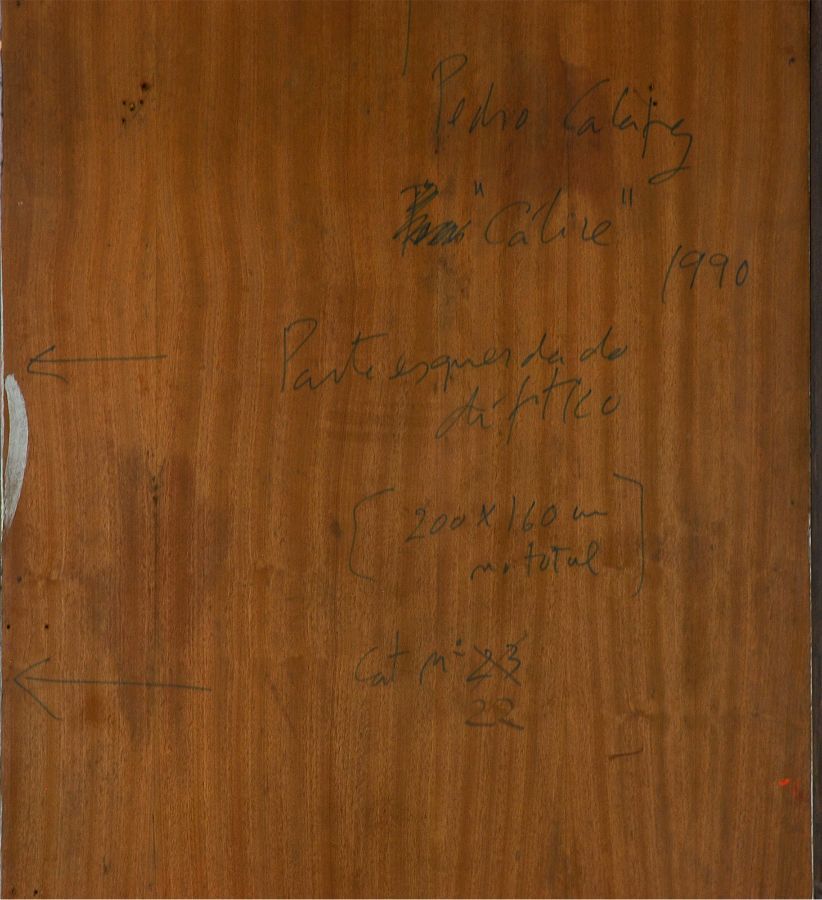 Pedro Calapez
"Cálice"
1990
Parte esquerda do
díptico
[200 x 160 cm
no total]
Cat nº 23
22